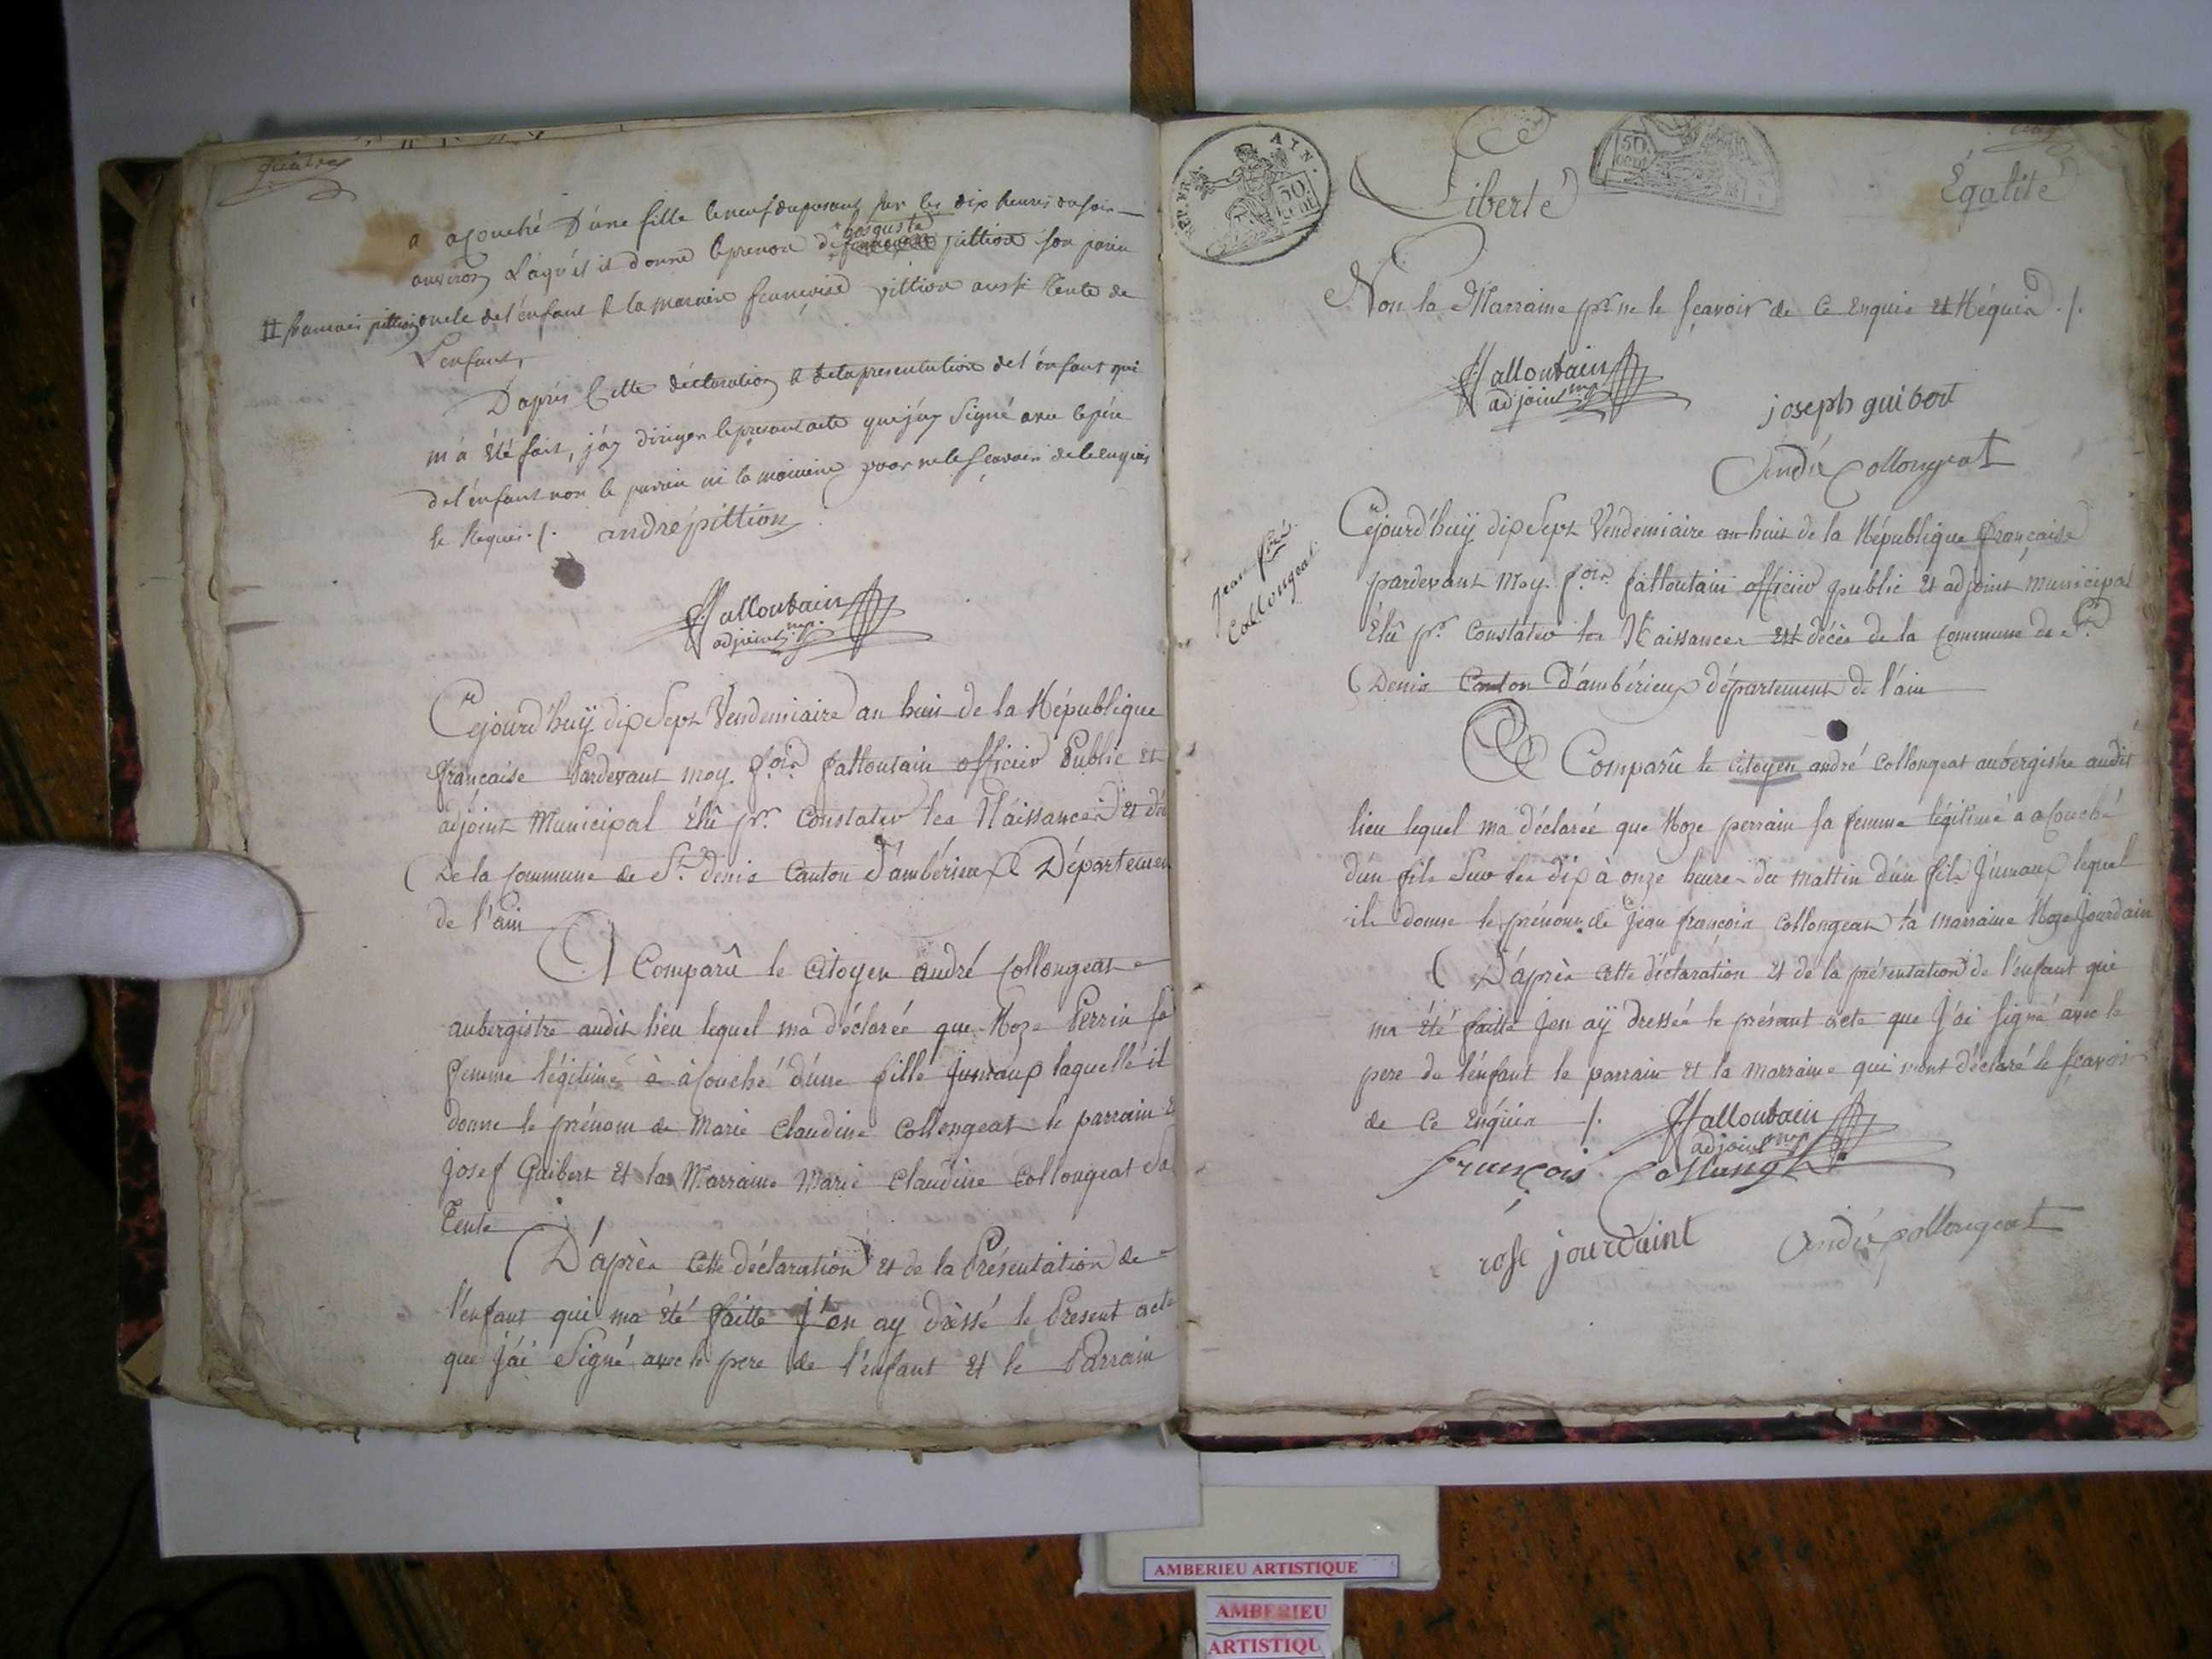 quatres
a acouché D'une fille le neuf du presant sur les dix heures du soir
anviron Laquel il donne le prenon de pittion son parin
basquste
# francois pittion oncle de l'enfant & la maraine francoise pittion aussi tente de
L'enfant,
D'après Cette déclaration & de la presentation de l'énfant qui
m'a été fait, j'ay diriger le presant acte que j'ay Signé avec le père
de l'énfant non le parain ni la maraine pour ne le sçavoir de ce enquis
& Requis ./. andre pittion
F falloutain
adjoint mp.
Cejourd'huÿ dix Sept Vendemiaire an huit de la République
française Pardevant moy f.ois falloutain officier Public et
adjoint Municipal Élû pr. Constater les Naissances et
De la Commune de St. denis Canton d'ambérieux Département
de l'ain
A Comparû le Citoyen andré Collongeat
aubergistre audit lieu lequel ma déclarée que Roze Perrin sa
femme légitime à àcouché d'une fille jumaux laquelle il
donne le prénom de Marie Claudine Collongeat le parrain
josef Guibert Et la Marraine Marie Claudine Collongeat sa
Tente
D'après Cette déclaration et de la Présentation de
l'enfant qui ma été faitte j'en ay dressé le Present acte
que j'ai Signé avec le pere de l'enfant et le Parrain
REP. FRA. AIN.
50. CENT.
50. CENT.
Liberté
Égalité
Non la Marraine pr. ne le sçavoir de Ce Enquie et Réquis ./.
F falloutain
adjoint mp
joseph guibert
André Collongeat
jean fcois
Collongeat
Cejourd'huÿ dix Sept Véndemiaire an huit de la République française
pardevant Moy f.ois falloutain officier public et adjoint municipal
Élû pr. Constater les Naissances et décès de la Commune de St.
Denis Canton D'ambérieux département de l'ain
A Comparû le Citoyen andré Collongeat aubergistre audit
lieu lequel ma déclarée que Roze perrain sa femme légitime a acouché
d'un fils Sur les dix à onze heures du mattin d'un fils Jumaux lequel
ils donne le prénom de Jean françois Collongeat la marraine Roze Jourdain
D'après Cette déclaration et de la présentation de l'enfant qui
ma été faitte Jen aÿ dressée le présant acte que J'ai signé avec le
pere de l'énfant le parrain et la marraine qui mont déclaré le sçavoir
de Ce Enquis ./.
F falloutain
adjoint mp
françois Collongeat
rose jourdaint
André Collongeat
AMBERIEU ARTISTIQUE
AMBERIEU
ARTISTIQU